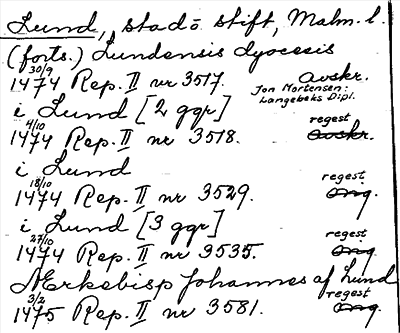 Lund, stad o stift, Malm. l.
(forts.) Lundensis dyocesis
30/9 1474 Rep. II nr 3517. Avskr.
Jon Mortensen:
Langebeks Dipl.
i Lund [2 ggr]
4/10 1474 Rep. II nr 3518. regest Avskr.
i Lund
18/10 1474 Rep. II nr 3529. regest Orig.
i Lund [3 ggr]
27/10 1474 Rep. II nr 3535. regest Orig
Ærkebisp Johannes af Lund
3/2 1475 Rep. II nr 3581. regest Orig.